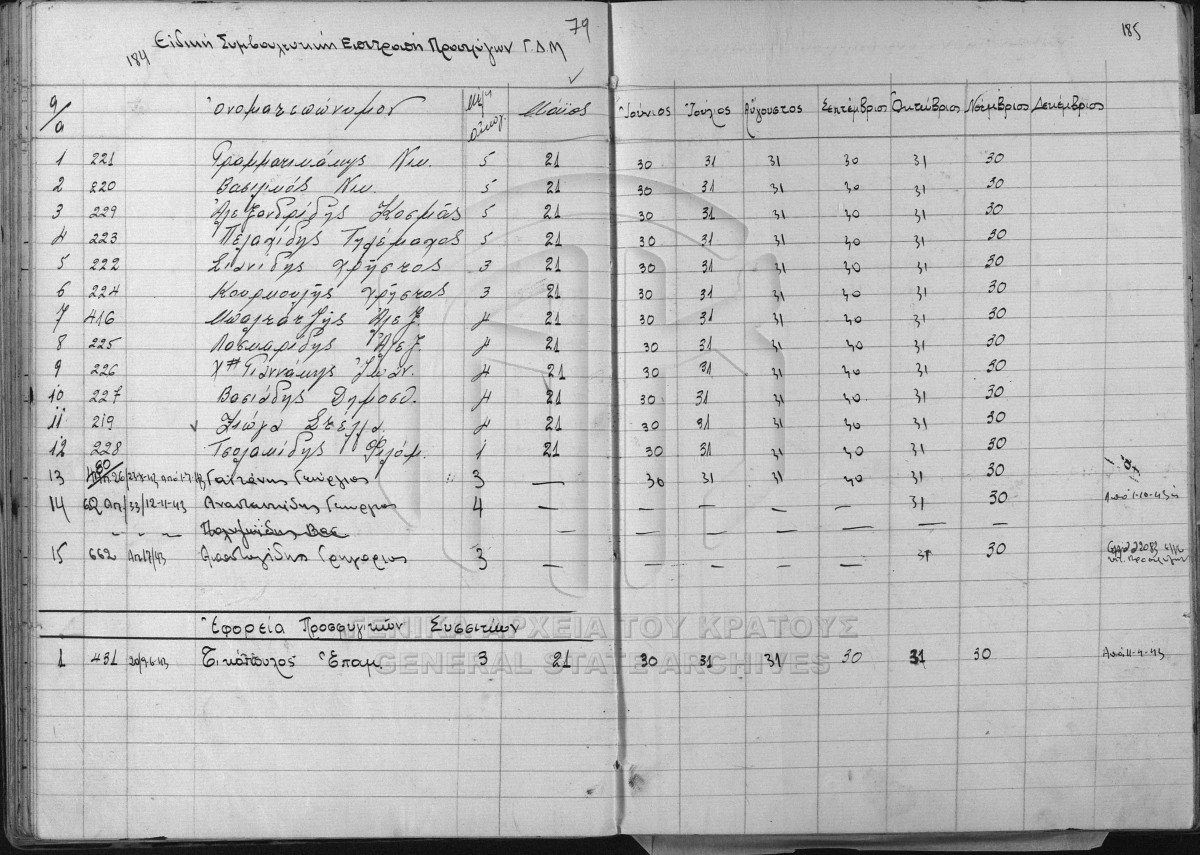 184 Εἰδική Συμβουλευτική Ἐπιτροπή Προσφύγων Γ.Δ.Μ 79 185
α/α Ὀνοματεπώνυμον Μάϊος Ἰούνιος Ἰούλιος Αὔγουστος Σεπτέμβριος Ὀκτώβριος Νοέμβριος Δεκέμβριος
1 221 Γραμματικάκης Νικ. 5 21 30 31 31 30 31 30
2 220 Νικ. 5 21 30 31 31 30 31 30
3 229 Ἀλεξανδρίδης Κοσμᾶς 5 21 30 31 31 30 31 30
4 223 Πελαγίδης Τηλέμαχος 5 21 30 31 31 30 31 30
5 222 Χρῆστος 3 21 30 31 31 30 31 30
6 224 Κουρμουλῆς Χρῆστος 3 21 30 31 31 30 31 30
7 416 Μπαλτατζῆς Ἀλεξ. 4 21 30 31 31 30 31 30
8 225 Λασκαρίδης Ἀλεξ. 4 21 30 31 31 30 31 30
9 226 Χ" Γιαννάκης Ἰωάν. 4 21 30 31 31 30 31 30
10 227 Βασιάδης Δημοσθ. 4 21 30 31 31 30 31 30
11 219 Ζιώγα Στέλλα 4 21 30 31 31 30 31 30
12 228 Τσολακίδης Φιλόμ. 1 21 30 31 31 30 31 30
13 Γαϊτάνης Γεώργιος 3 — 30 31 31 30 31 30
14 33/12-11-43 Ἀναστασιάδης Γεώργιος 4 — — — — — 31 30 Ἀπό 1-10-43
" " " — — — — — — —
15 662 Απ.17/43 Γρηγόριος 3 — — — — — 31 30
Ἐφορεία Προσφυγικῶν Συσσιτίων
1 431 20/9-6-43 Τικόπουλος Ἐπαμ. 3 21 30 31 31 30 31 30 Ἀπό 11-4-43
ΓΕΝΙΚΑ ΑΡΧΕΙΑ ΤΟΥ ΚΡΑΤΟΥΣ
GENERAL STATE ARCHIVES